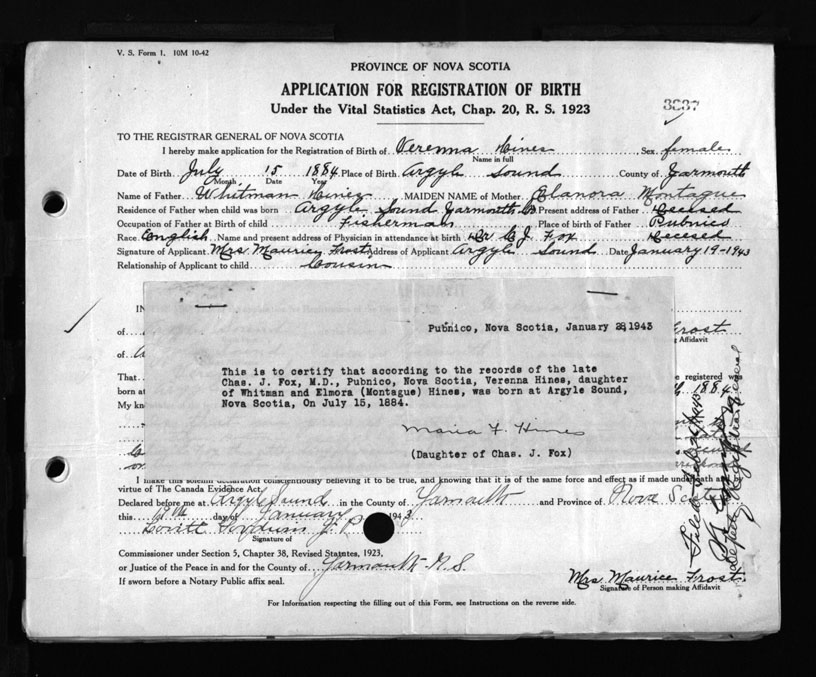 V. S. Form 1. 10M 10-42
PROVINCE OF NOVA SCOTIA
APPLICATION FOR REGISTRATION OF BIRTH
Under the Vital Statistics Act, Chap. 20, R. S. 1923
3287
TO THE REGISTRAR GENERAL OF NOVA SCOTIA
I hereby make application for the Registration of Birth of Verenna Hines Sex female
Name in full
Date of Birth July 15 1884 Place of Birth Argyle Sound County of Yarmouth
Month Date Year
Name of Father Whitman Hines MAIDEN NAME of Mother Elanora Montague
Residence of Father when child was born Argyle Sound Yarmouth Co Present address of Father Decesed
Occupation of Father at Birth of child Fisherman Place of birth of Father Pubnico
Race English Name and present address of Physician in attendance at birth Dr C J. Fox Decesed
Signature of Applicant Mrs Maurice Frost Address of Applicant Argyle Sound Date January 19-1943
Relationship of Applicant to child Cousin
IN
of
Frost
g Affidavit
of
That
e registered was
born at
1884
My kno
Pubnico, Nova Scotia, January 28,1943
This is to certify that according to the records of the late
Chas. J. Fox, M.D., Pubnico, Nova Scotia, Verenna Hines, daughter
of Whitman and Elmora (Montague) Hines, was born at Argyle Sound,
Nova Scotia, On July 15, 1884.
Maria F. Hines
(Daughter of Chas. J. Fox)
I make this solemn declaration conscientiously believing it to be true, and knowing that it is of the same force and effect as if made under oath and
virtue of The Canada Evidence Act.
Declared before me at Argyle Sound in the County of Yarmouth and Province of Nova Scotia
this day of January 1943
J. P.
Signature of
Commissioner under Section 5, Chapter 38, Revised Statutes, 1923,
or Justice of the Peace in and for the County of Yarmouth N. S.
If sworn before a Notary Public affix seal.
Mrs Maurice Frost
Signature of Person making Affidavit
For Information respecting the filling out of this Form, see Instructions on the reverse side.
Deputy Registrar General